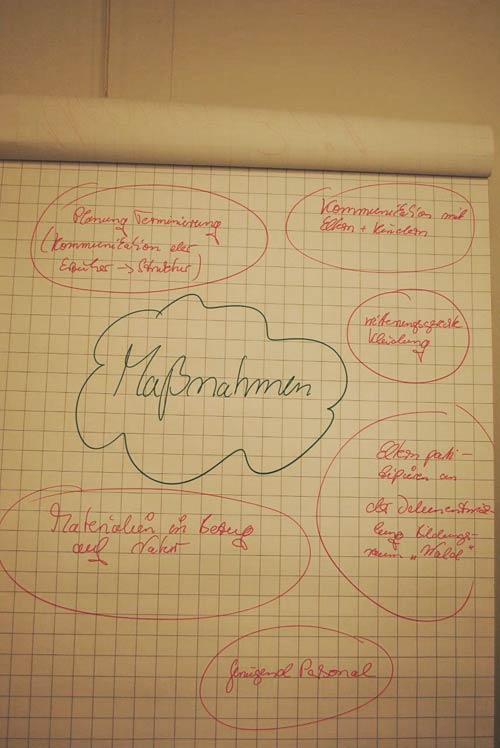 Planung Terminierung
(Kommunikation der
Erzieher → Struktur)
Kommunikation mit
Eltern + Kindern
witterungsgerechte
Kleidung
Maßnahmen
Eltern parti-
zipieren an
der
Bildungs-
raum „Wald"
Materialien in Bezug
auf Natur
genügend Personal